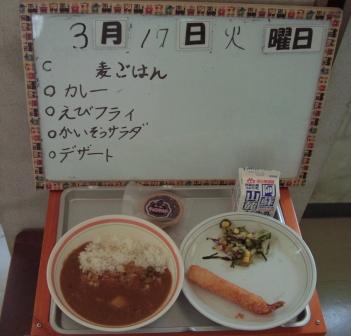 3月17日火曜日
麦ごはん
カレー
えびフライ
かいそうサラダ
デザート